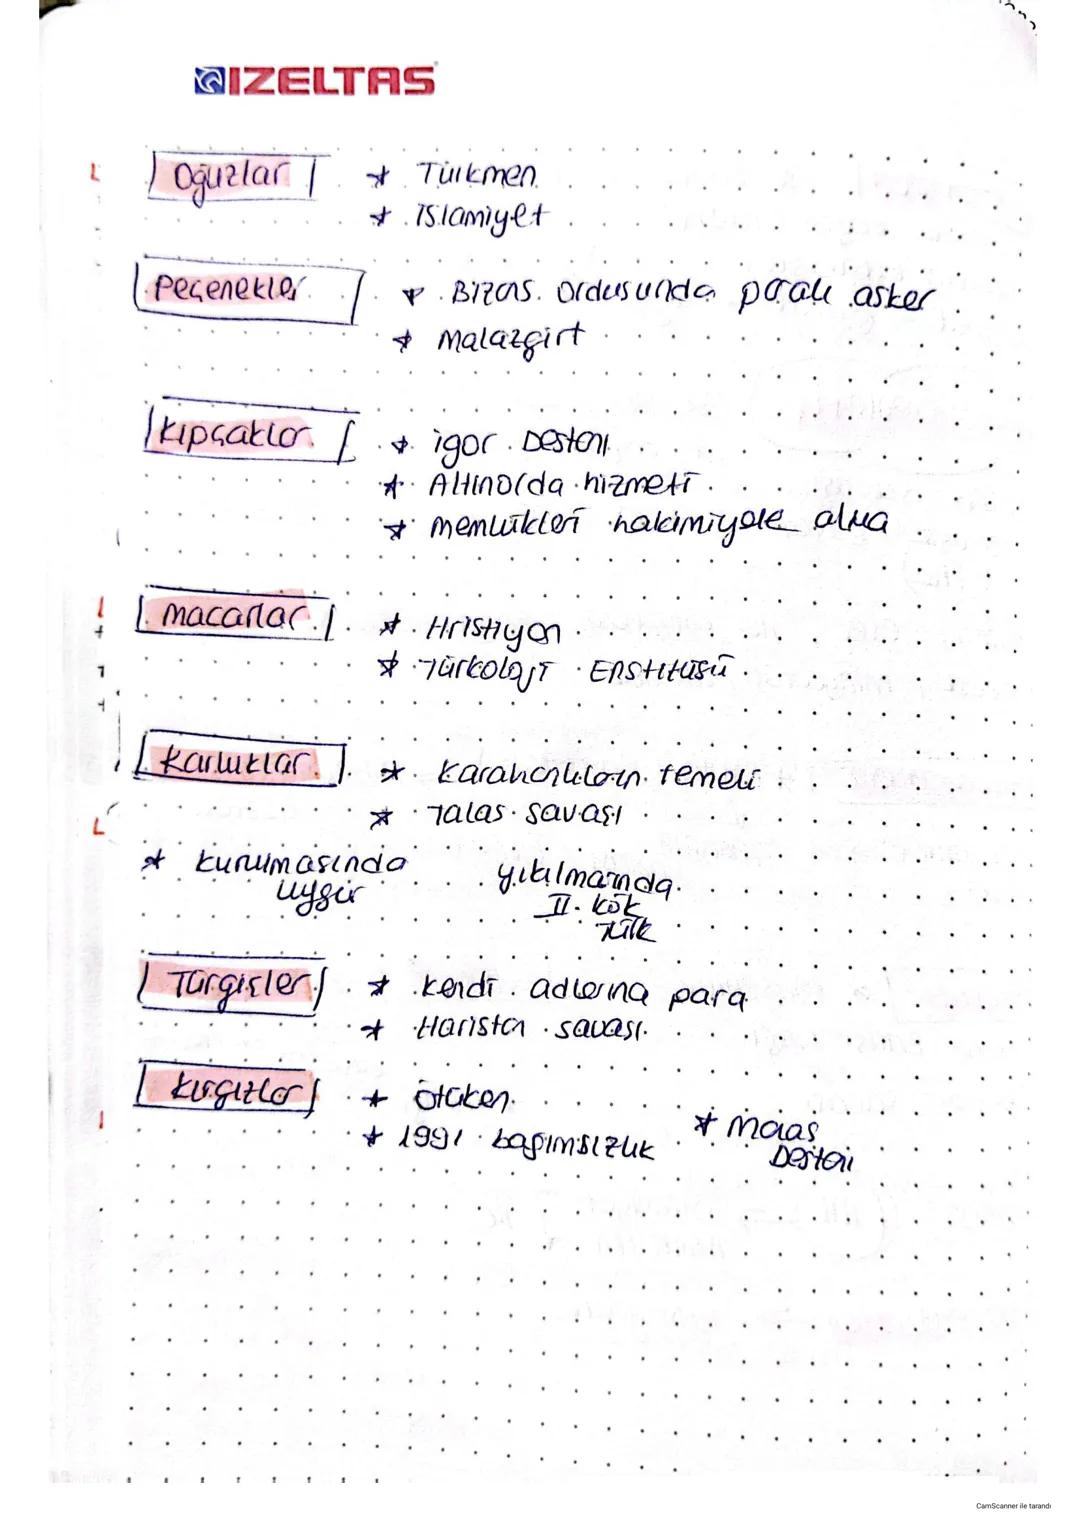 IZELTAS
Oğuzlar * Türkmen
* İslamiyet
Peçenekler * Bizans Ordusunda paralı asker
* Malazgirt
Kıpçaklar * igor Destanı
* Altınorda hizmeti
* memlükleri hakimiyete alma
macarlar * Hristiyan
* Türkoloji Enstitüsü
Karluklar * Karahanlıların temeli
* Talas savaşı
* kurumasında yıkılmarında
uygur II. kök
Türk
Türgişler * kendi adlarına para
* Haristan savaşı
kırgızlar * ötüken
* 1991 bağımsızlık * manas
Destanı
CamScanner ile tarandı